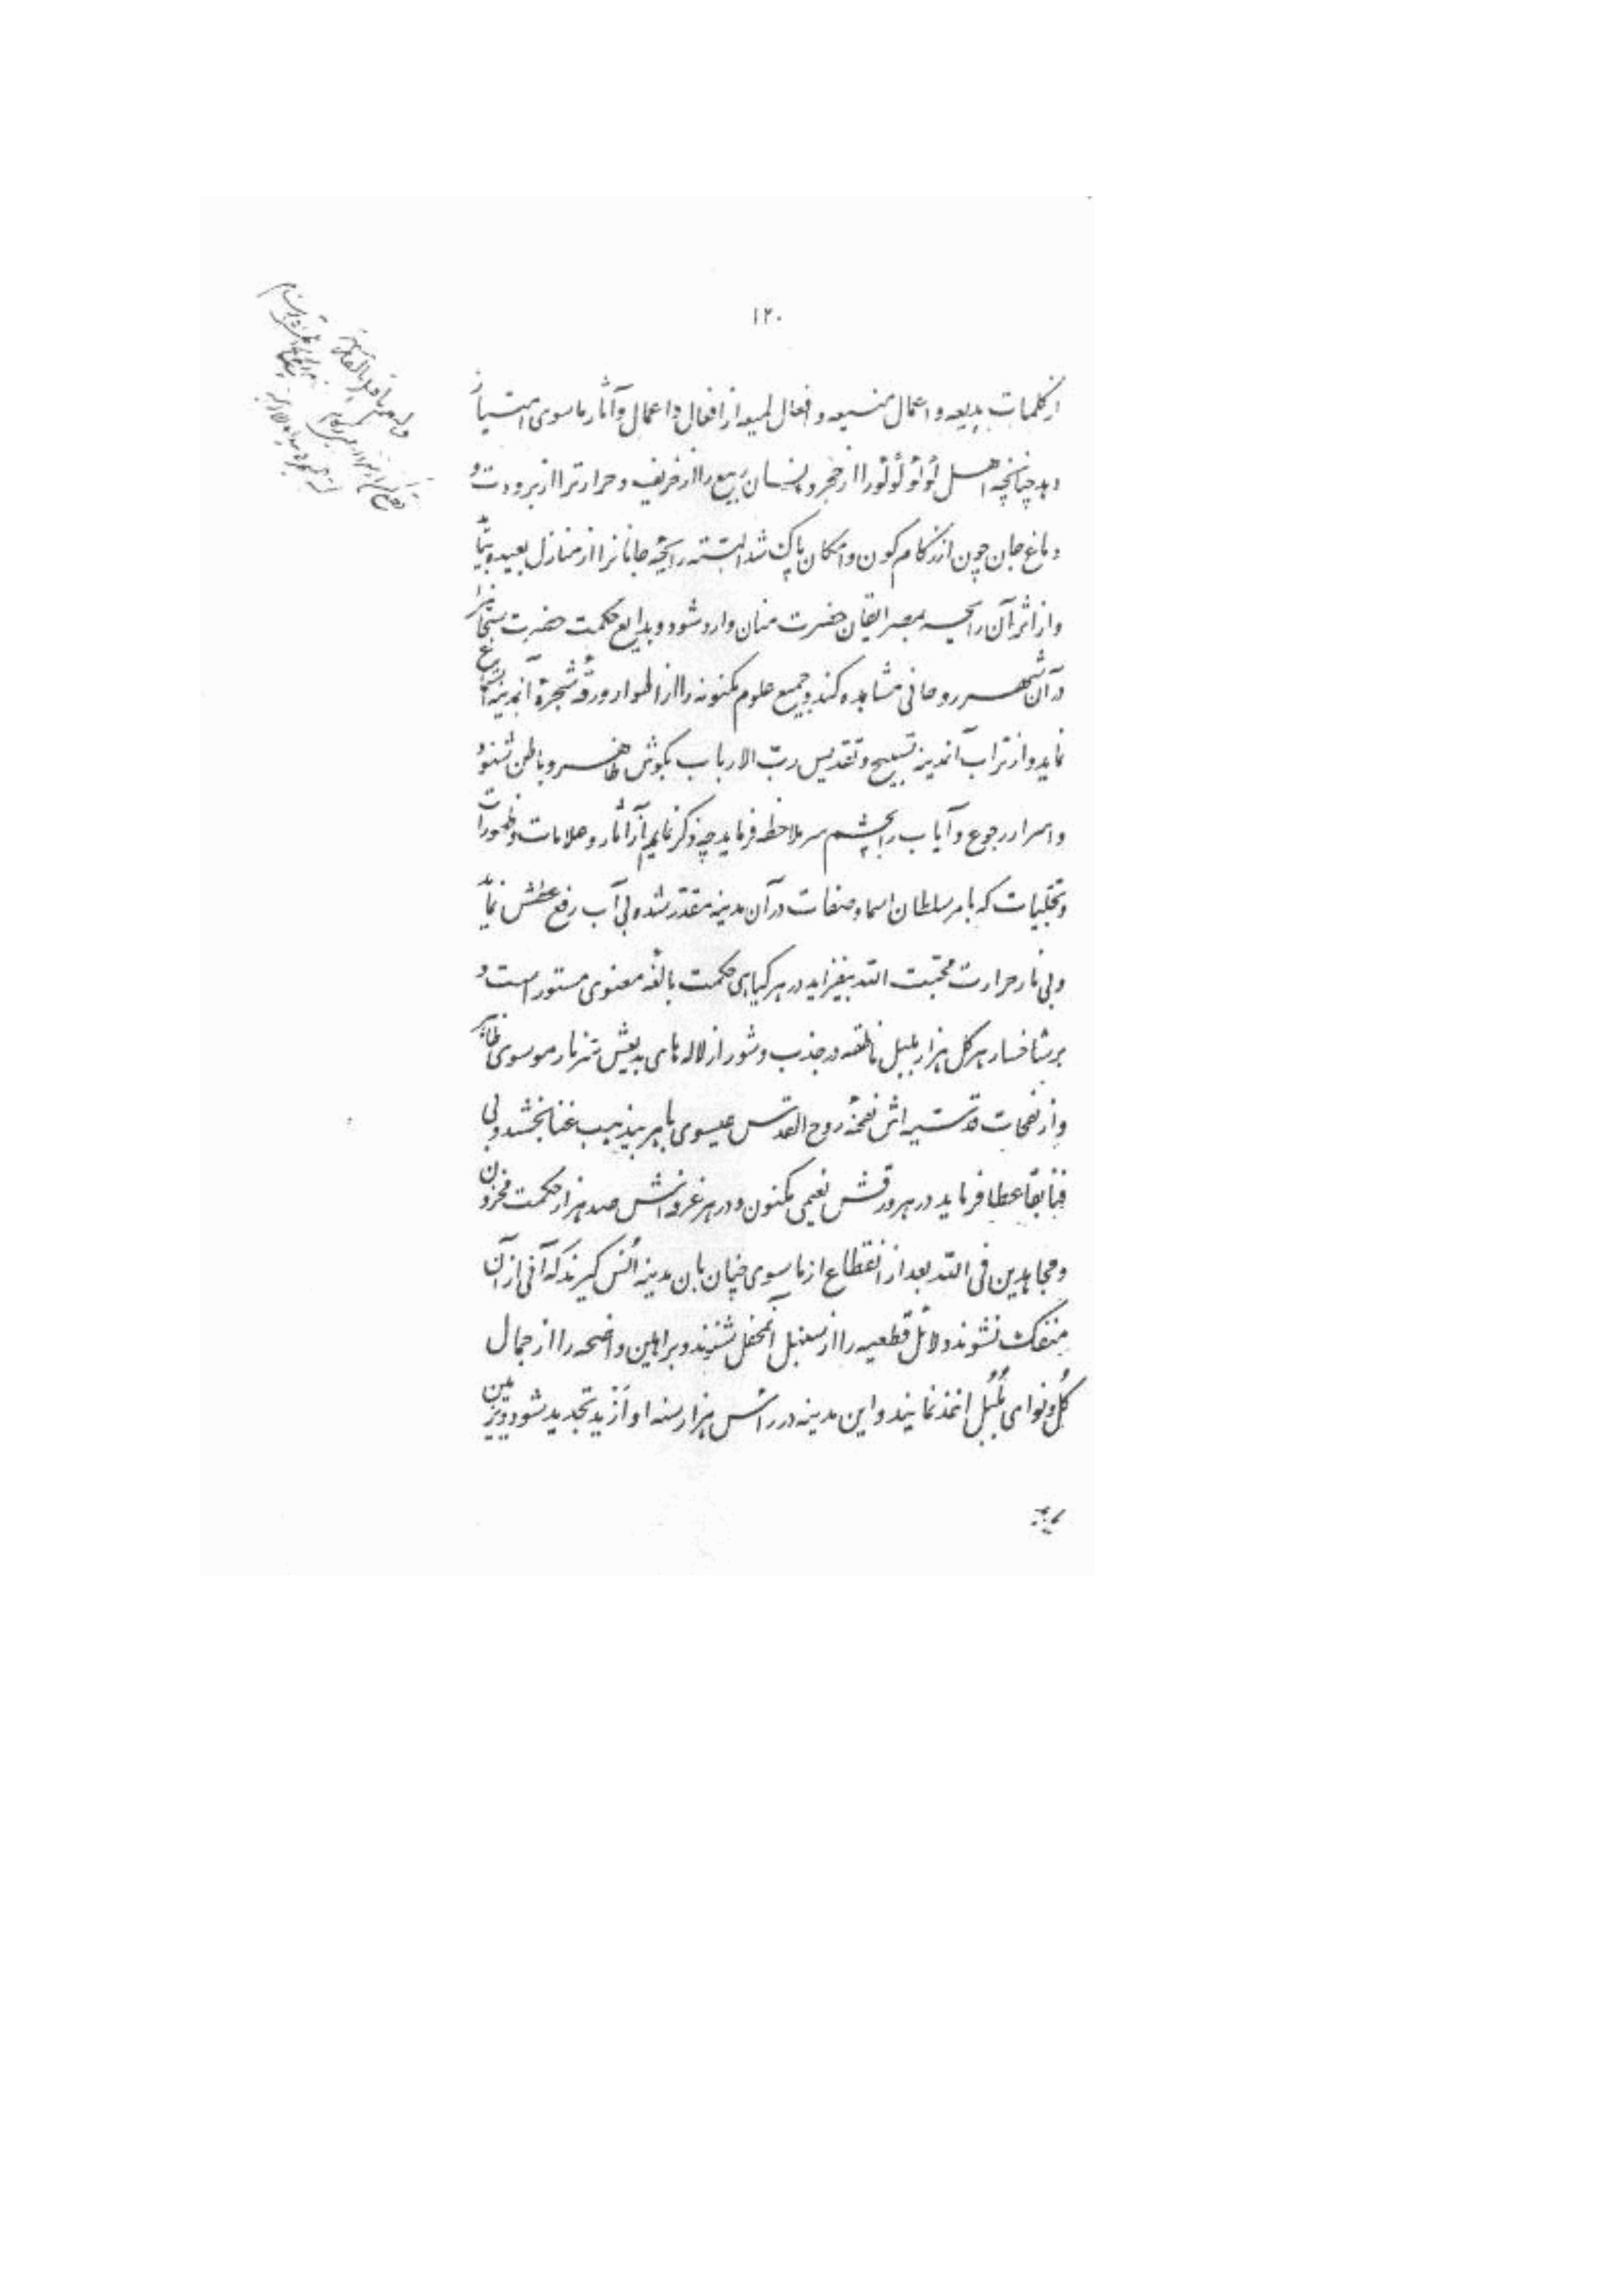 ۱۲۰
از کلمات بدیعه و اعمال منیعه و افعال لمیعه از افعال و اعمال و آثار ماسوی امتیاز
دهد چنانچه اهل لؤلؤ لؤلؤ را از حجر و انسان ربیع را از خریف و حرارترا از برودت و
دماغ جان چون از زکام کون و امکان پاک شد البته رایحه جانانرا از منازل بعیده بیابد
و از اثر آن رایحه بمصر ایقان حضرت منان وارد شود و بدایع حکمت حضرت سبحانرا
در آن شهر روحانی مشاهده کند و جمیع علوم مکنونه را از اطوار ورقه شجره آنمدینه استماع
نماید و از تراب آنمدینه تسبیح و تقدیس ربّ الارباب بگوش ظاهر و باطن شنود
و اسرار رجوع و آیاب را بچشم سر ملاحظه فرماید چه ذکر نمایم از آثار و علامات و ظهورات
و تجلّیات که بامر سلطان اسما و صفات در آن مدینه مقدّر شده بی آب رفع عطش نماید
و بی نار حرارت محبّت الله بیفزاید در هر گیاهی حکمت بالغه معنوی مستور است و
بر شاخسار هر گل هزار بلبل ناطقه در جذب و شور از لاله های بدیعش سرّ نار موسوی ظاهر
و از نفحات قدسیه اش نفخه روح القدس عیسوی باهر بی ذهب غنا بخشد و بی
فنا بقا عطا فرماید در هر ورقش نعیمی مکنون و در هر غرفه اش صد هزار حکمت مخزون
و مجاهدین فی الله بعد از انقطاع از ماسوی چنان بآن مدینه اُنس گیرند که آنی از آن
منفکّ نشوند و دلائل قطعیه را از سنبل آنمحفل شنوند و براهین واضحه را از جمال
گُل و نوای بُلبُل اخذ نمایند و این مدینه در رأس هزار سنه او اَزْید تجدید شود و تزیین